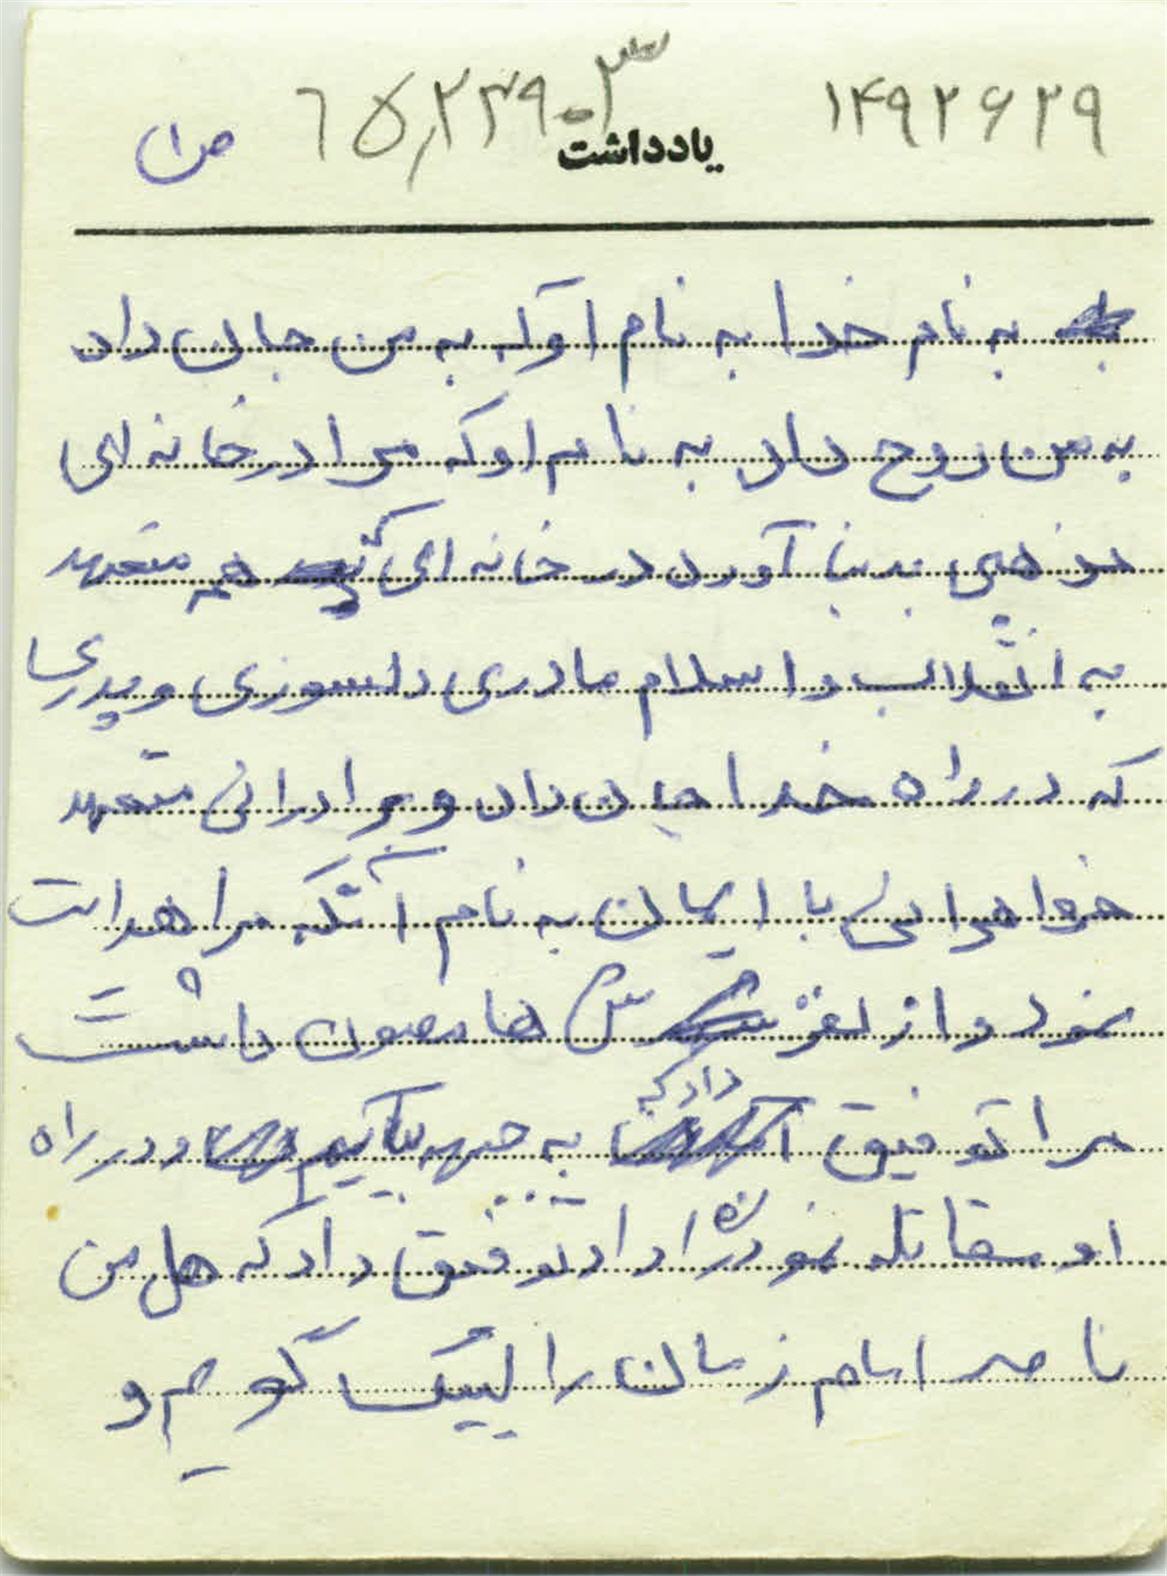 ۱۴۹۲۶۲۹
یادداشت
ص۱
به نام خدا به نام اوکه به من جان داد
به من روح داد به نام اوکه مرا در خانه ای
مذهبی بدنیا آورد در خانه ای که همه متعهد
به انقلاب و اسلام مادری دلسوزی و پدری
که در راه خدا جان داد و برادرانی متعهد
خواهرانی با ایمان به نام آنکه مرا هدایت
نمود و از لغزش ها مصون داشت
مرا توفیق داد که به جبهه بیایم و در راه
او مقاتله نموده توفیق داد که هل من
ناصر امام زمان را لبیک گویم و